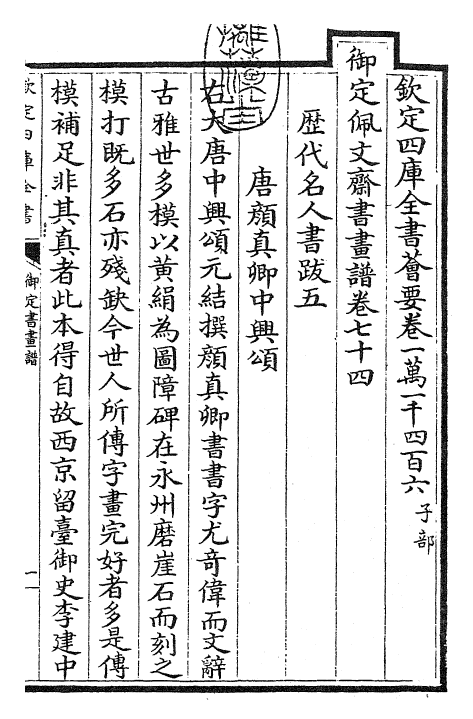 欽定四庫全書薈要卷一萬一千四百六 子部
御定佩文齋書畫譜卷七十四
歴代名人書跋五
唐顔真卿中興頌
右大唐中興頌元結撰顔真卿書書字尤竒偉而文辭
古雅世多模以黄絹為圖障碑在永州磨崖石而刻之
模打既多石亦殘缺今世人所傳字畫完好者多是傳
模補足非其真者此本得自故西京留臺御史李建中
欽定四庫全書
御定書畫譜
一